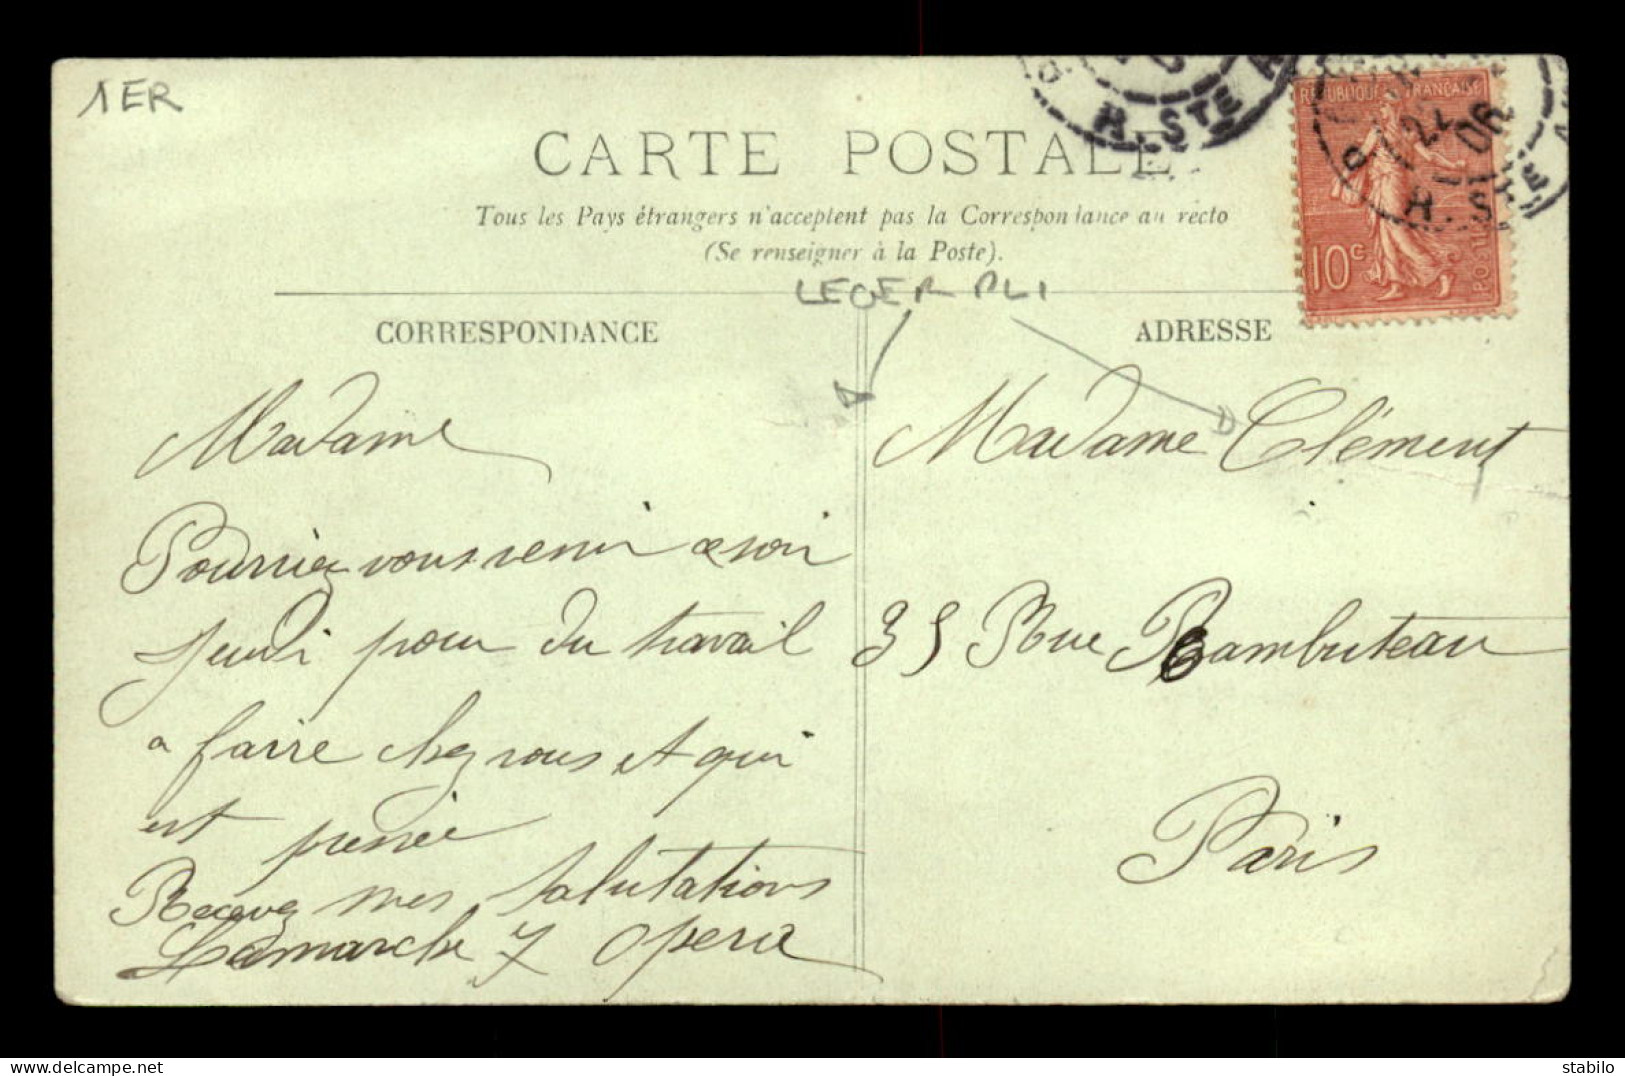 1ER
CARTE POSTALE
Tous les Pays étrangers n'acceptent pas la Correspondance au recto
(Se renseigner à la Poste).
LEGER PLI
R. STE A
REPUBLIQUE FRANÇAISE
10c
POSTES
22
06
R. STE A
CORRESPONDANCE
Madame
Pourriez vous venir
jeudi pour du travail
a faire chez vous et qui
est pressé
Recevez mes salutations
Lamarche 7 opera
ADRESSE
Madame Clément
35 Rue Rambuteau
Paris
delcampe.net
stabilo